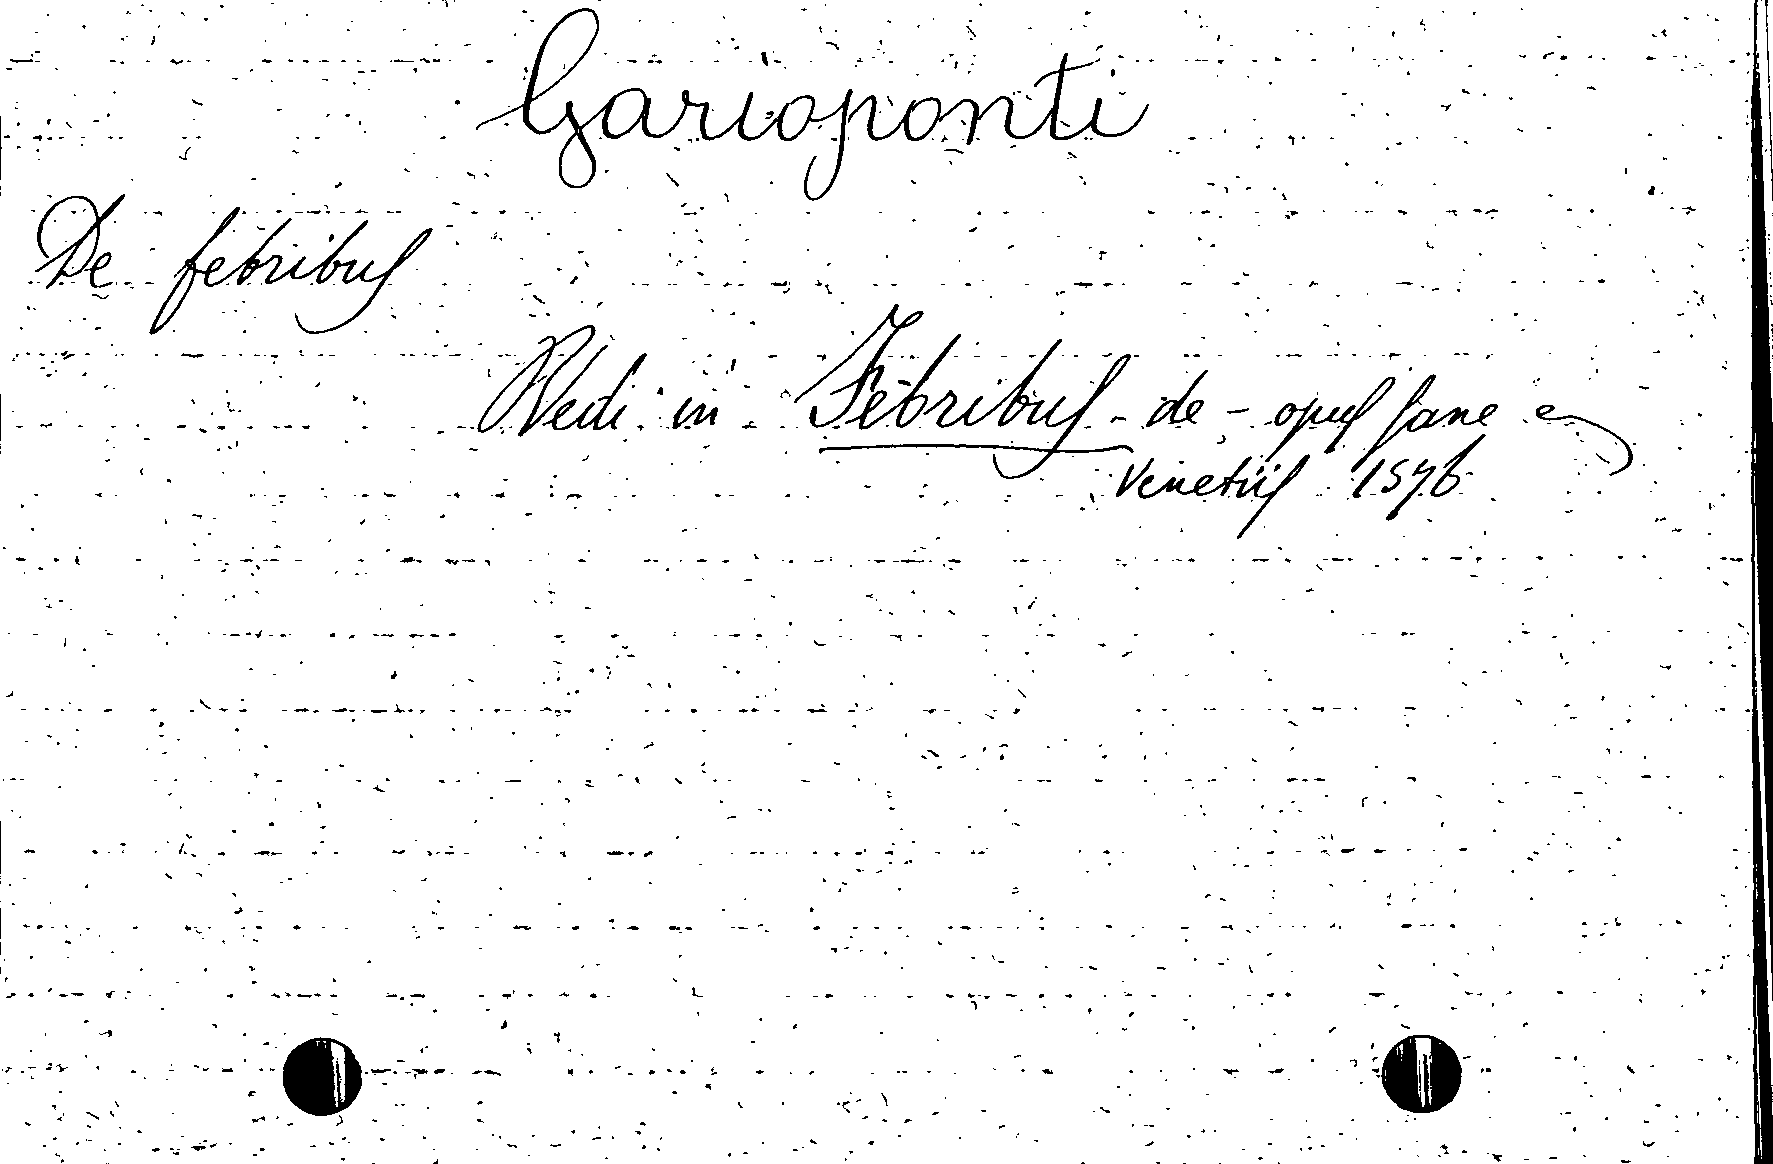 Garioponti
De febribus
Vedi in Febribus - de - opus sane e
Venetiis 1576